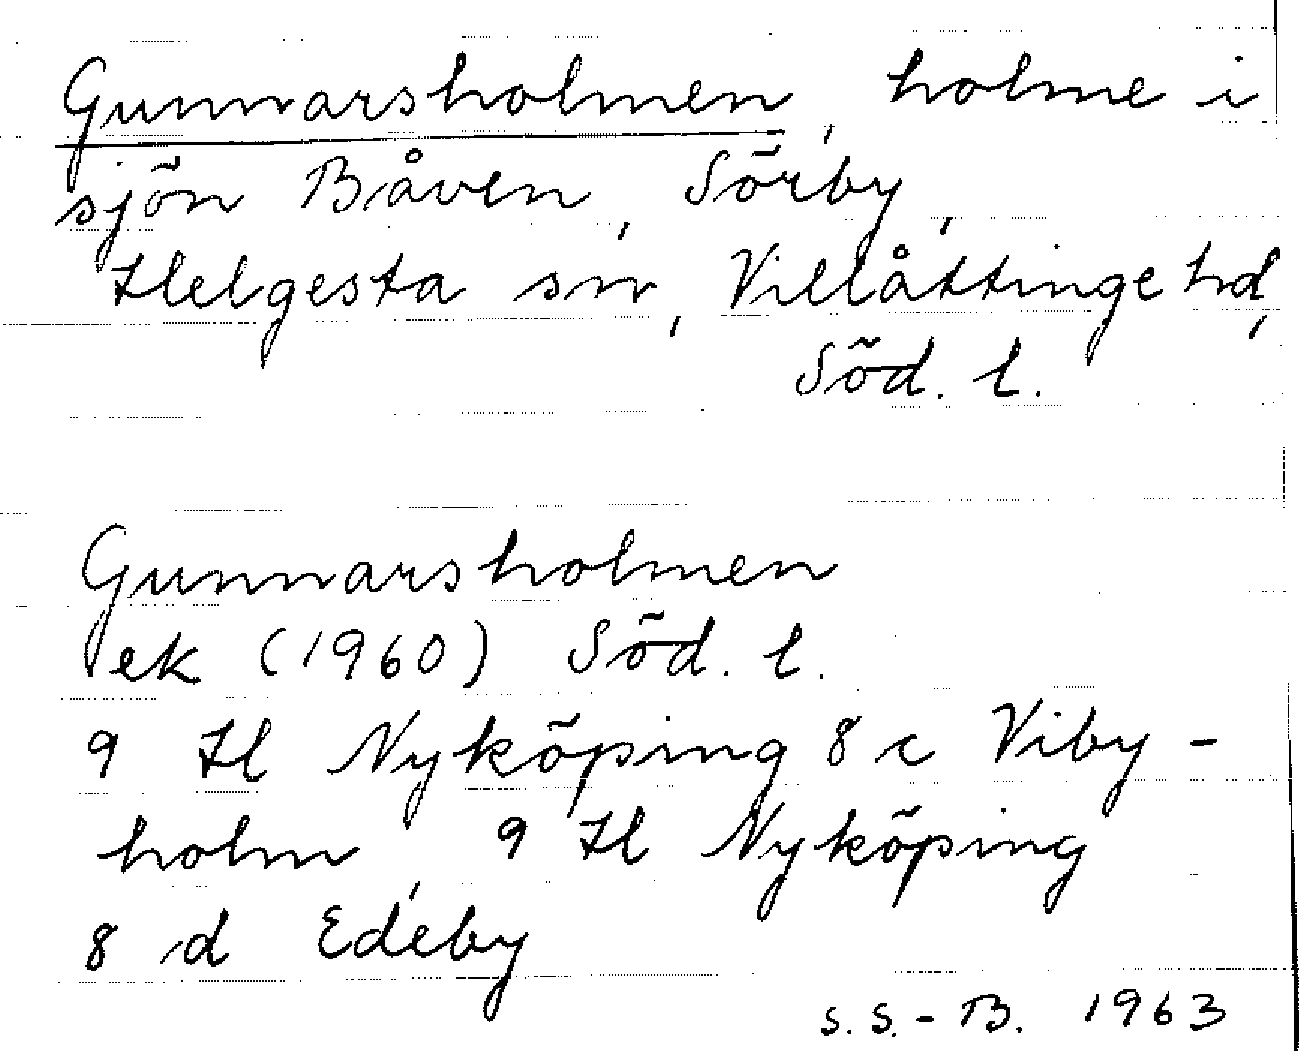 Gunnarsholmen, holme i
sjön Båven, Sörby,
Helgesta sn, Villåttinge hd,
Söd. l.
Gunnarsholmen
ek (1960) Söd. l.
9 H Nyköping 8 c Viby-
holm, 9 H Nyköping
8 d Edeby
S. S.-B. 1963